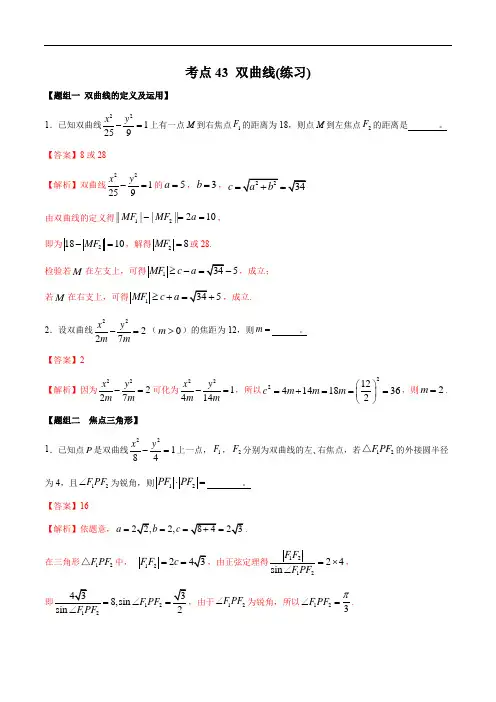 考点43 双曲线(练习)
【题组一 双曲线的定义及运用】
1．已知双曲线 x²/25 − y²/9 = 1 上有一点 M 到右焦点 F₁ 的距离为 18，则点 M 到左焦点 F₂ 的距离是 ______ 。
【答案】8 或 28
【解析】双曲线 x²/25 − y²/9 = 1 的 a = 5， b = 3， c = √(a² + b²) = √34
由双曲线的定义得 ||MF₁| − |MF₂|| = 2a = 10，
即为 |18 − MF₂| = 10，解得 MF₂ = 8 或 28.
检验若 M 在左支上，可得 MF₁ ≥ c − a = √34 − 5，成立；
若 M 在右支上，可得 MF₁ ≥ c + a = √34 + 5，成立.
2．设双曲线 x²/2m − y²/7m = 2（ m > 0 ）的焦距为 12，则 m = ______ 。
【答案】2
【解析】因为 x²/2m − y²/7m = 2 可化为 x²/4m − y²/14m = 1，所以 c² = 4m + 14m = 18m = (12/2)² = 36，则 m = 2 .
【题组二 焦点三角形】
1．已知点 P 是双曲线 x²/8 − y²/4 = 1 上一点， F₁， F₂ 分别为双曲线的左、右焦点，若 △F₁PF₂ 的外接圆半径
为 4，且 ∠F₁PF₂ 为锐角，则 |PF₁| · |PF₂| = ______ 。
【答案】16
【解析】依题意， a = 2√2, b = 2, c = √(8 + 4) = 2√3 .
在三角形 △F₁PF₂ 中， |F₁F₂| = 2c = 4√3，由正弦定理得 |F₁F₂|/sin∠F₁PF₂ = 2 × 4，
即 4√3/sin∠F₁PF₂ = 8, sin∠F₁PF₂ = √3/2，由于 ∠F₁PF₂ 为锐角，所以 ∠F₁PF₂ = π/3 .